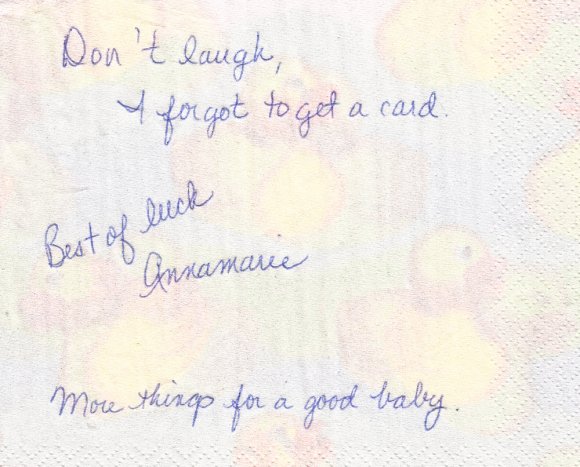 Don't laugh,
I forgot to get a card.
Best of luck
Annamarie
More things for a good baby.